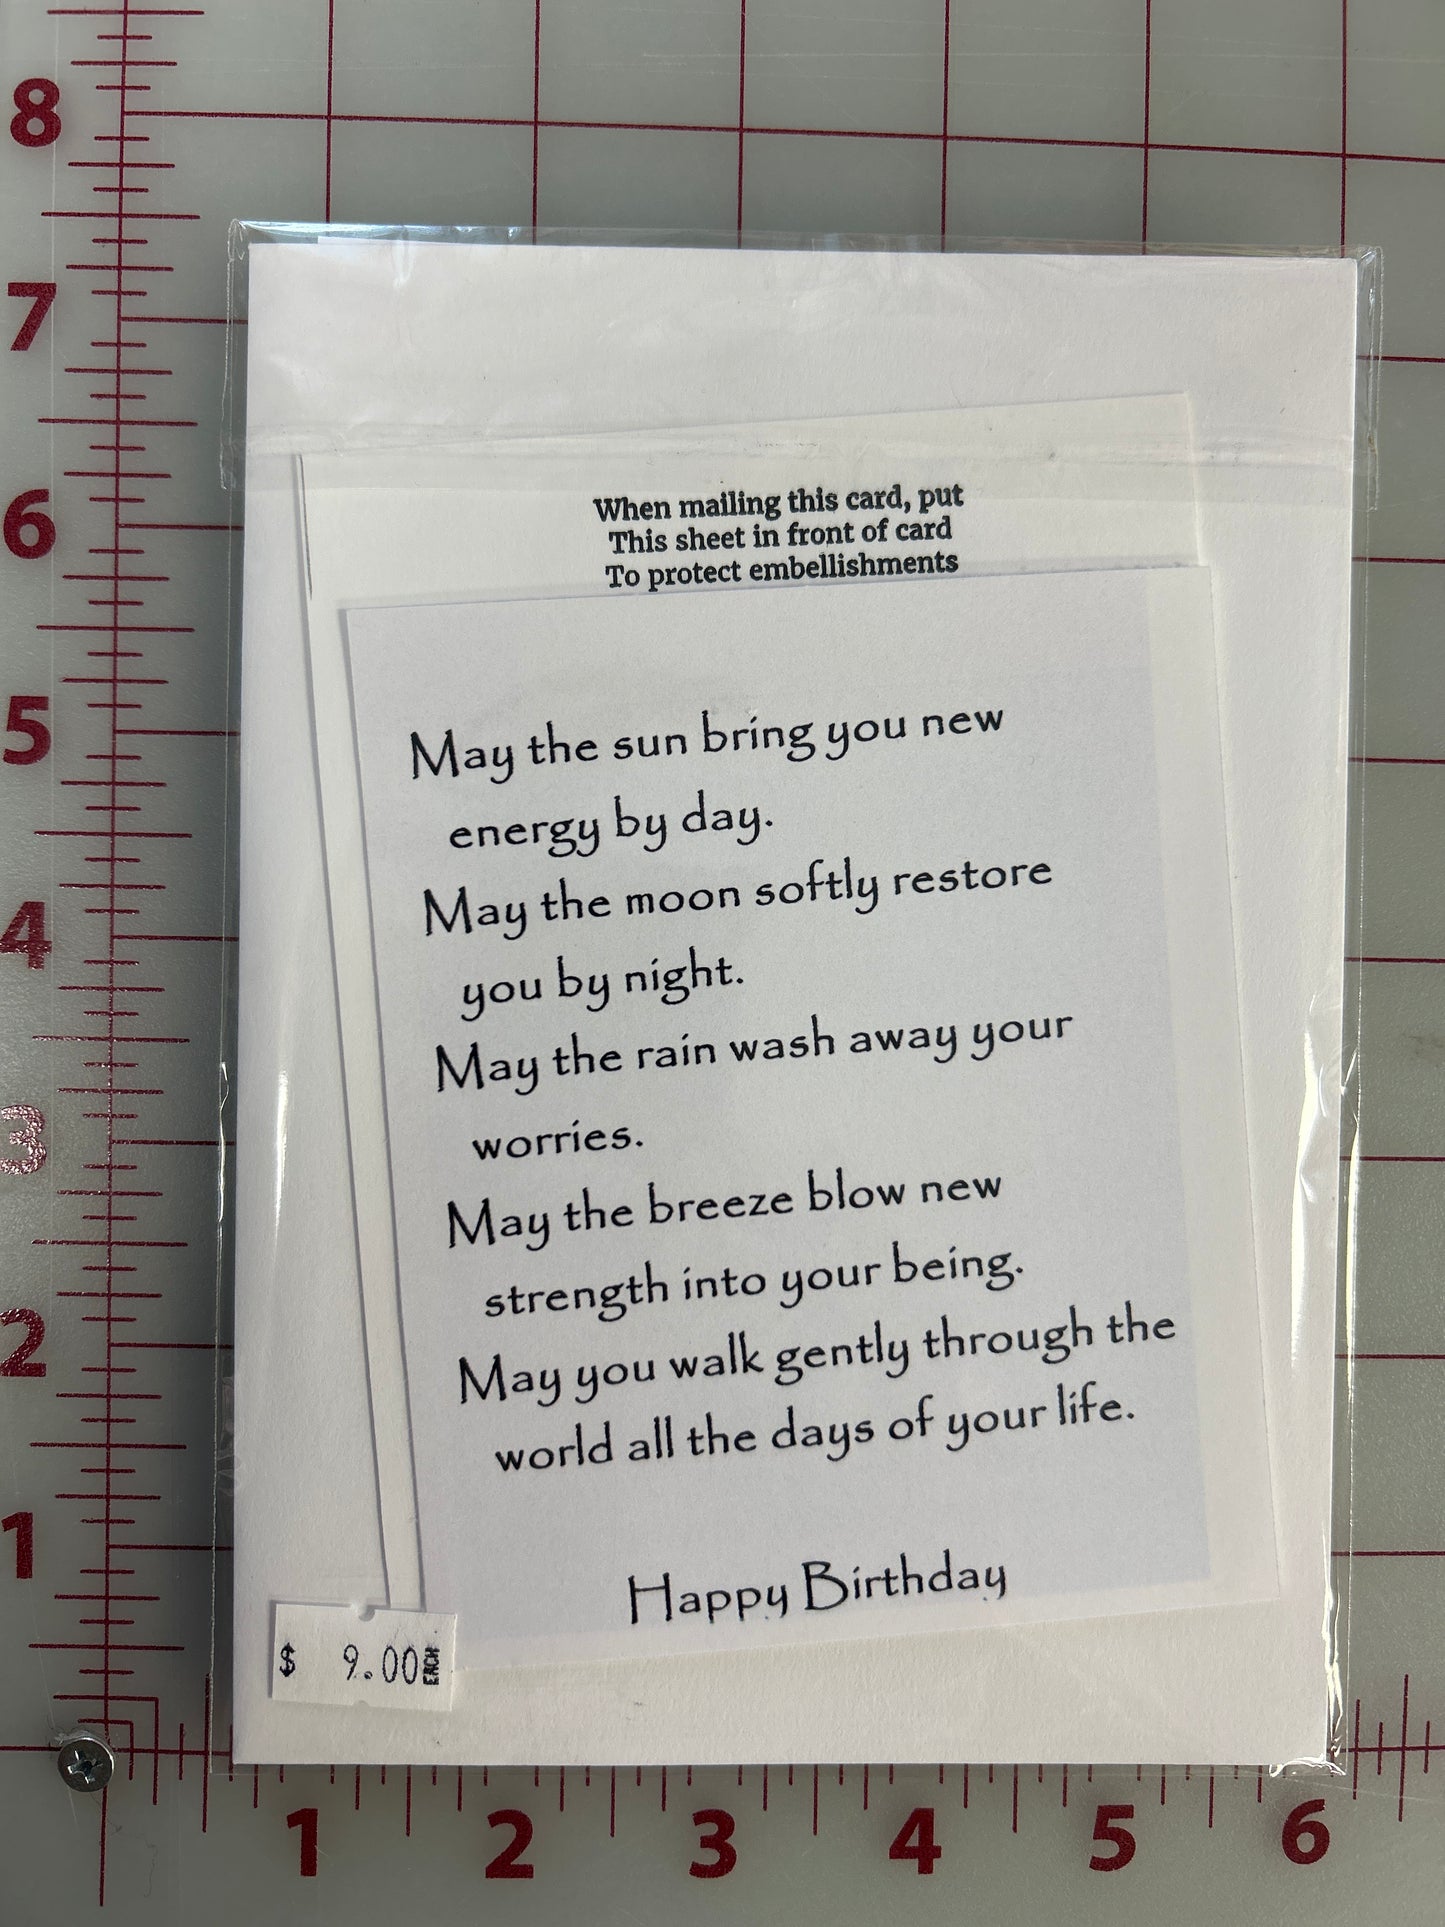 8
7
6
5
4
3
2
1
When mailing this card, put
This sheet in front of card
To protect embellishments
May the sun bring you new
energy by day.
May the moon softly restore
you by night.
May the rain wash away your
worries.
May the breeze blow new
strength into your being.
May you walk gently through the
world all the days of your life.
Happy Birthday
$ 9.00 EACH
1 2 3 4 5 6